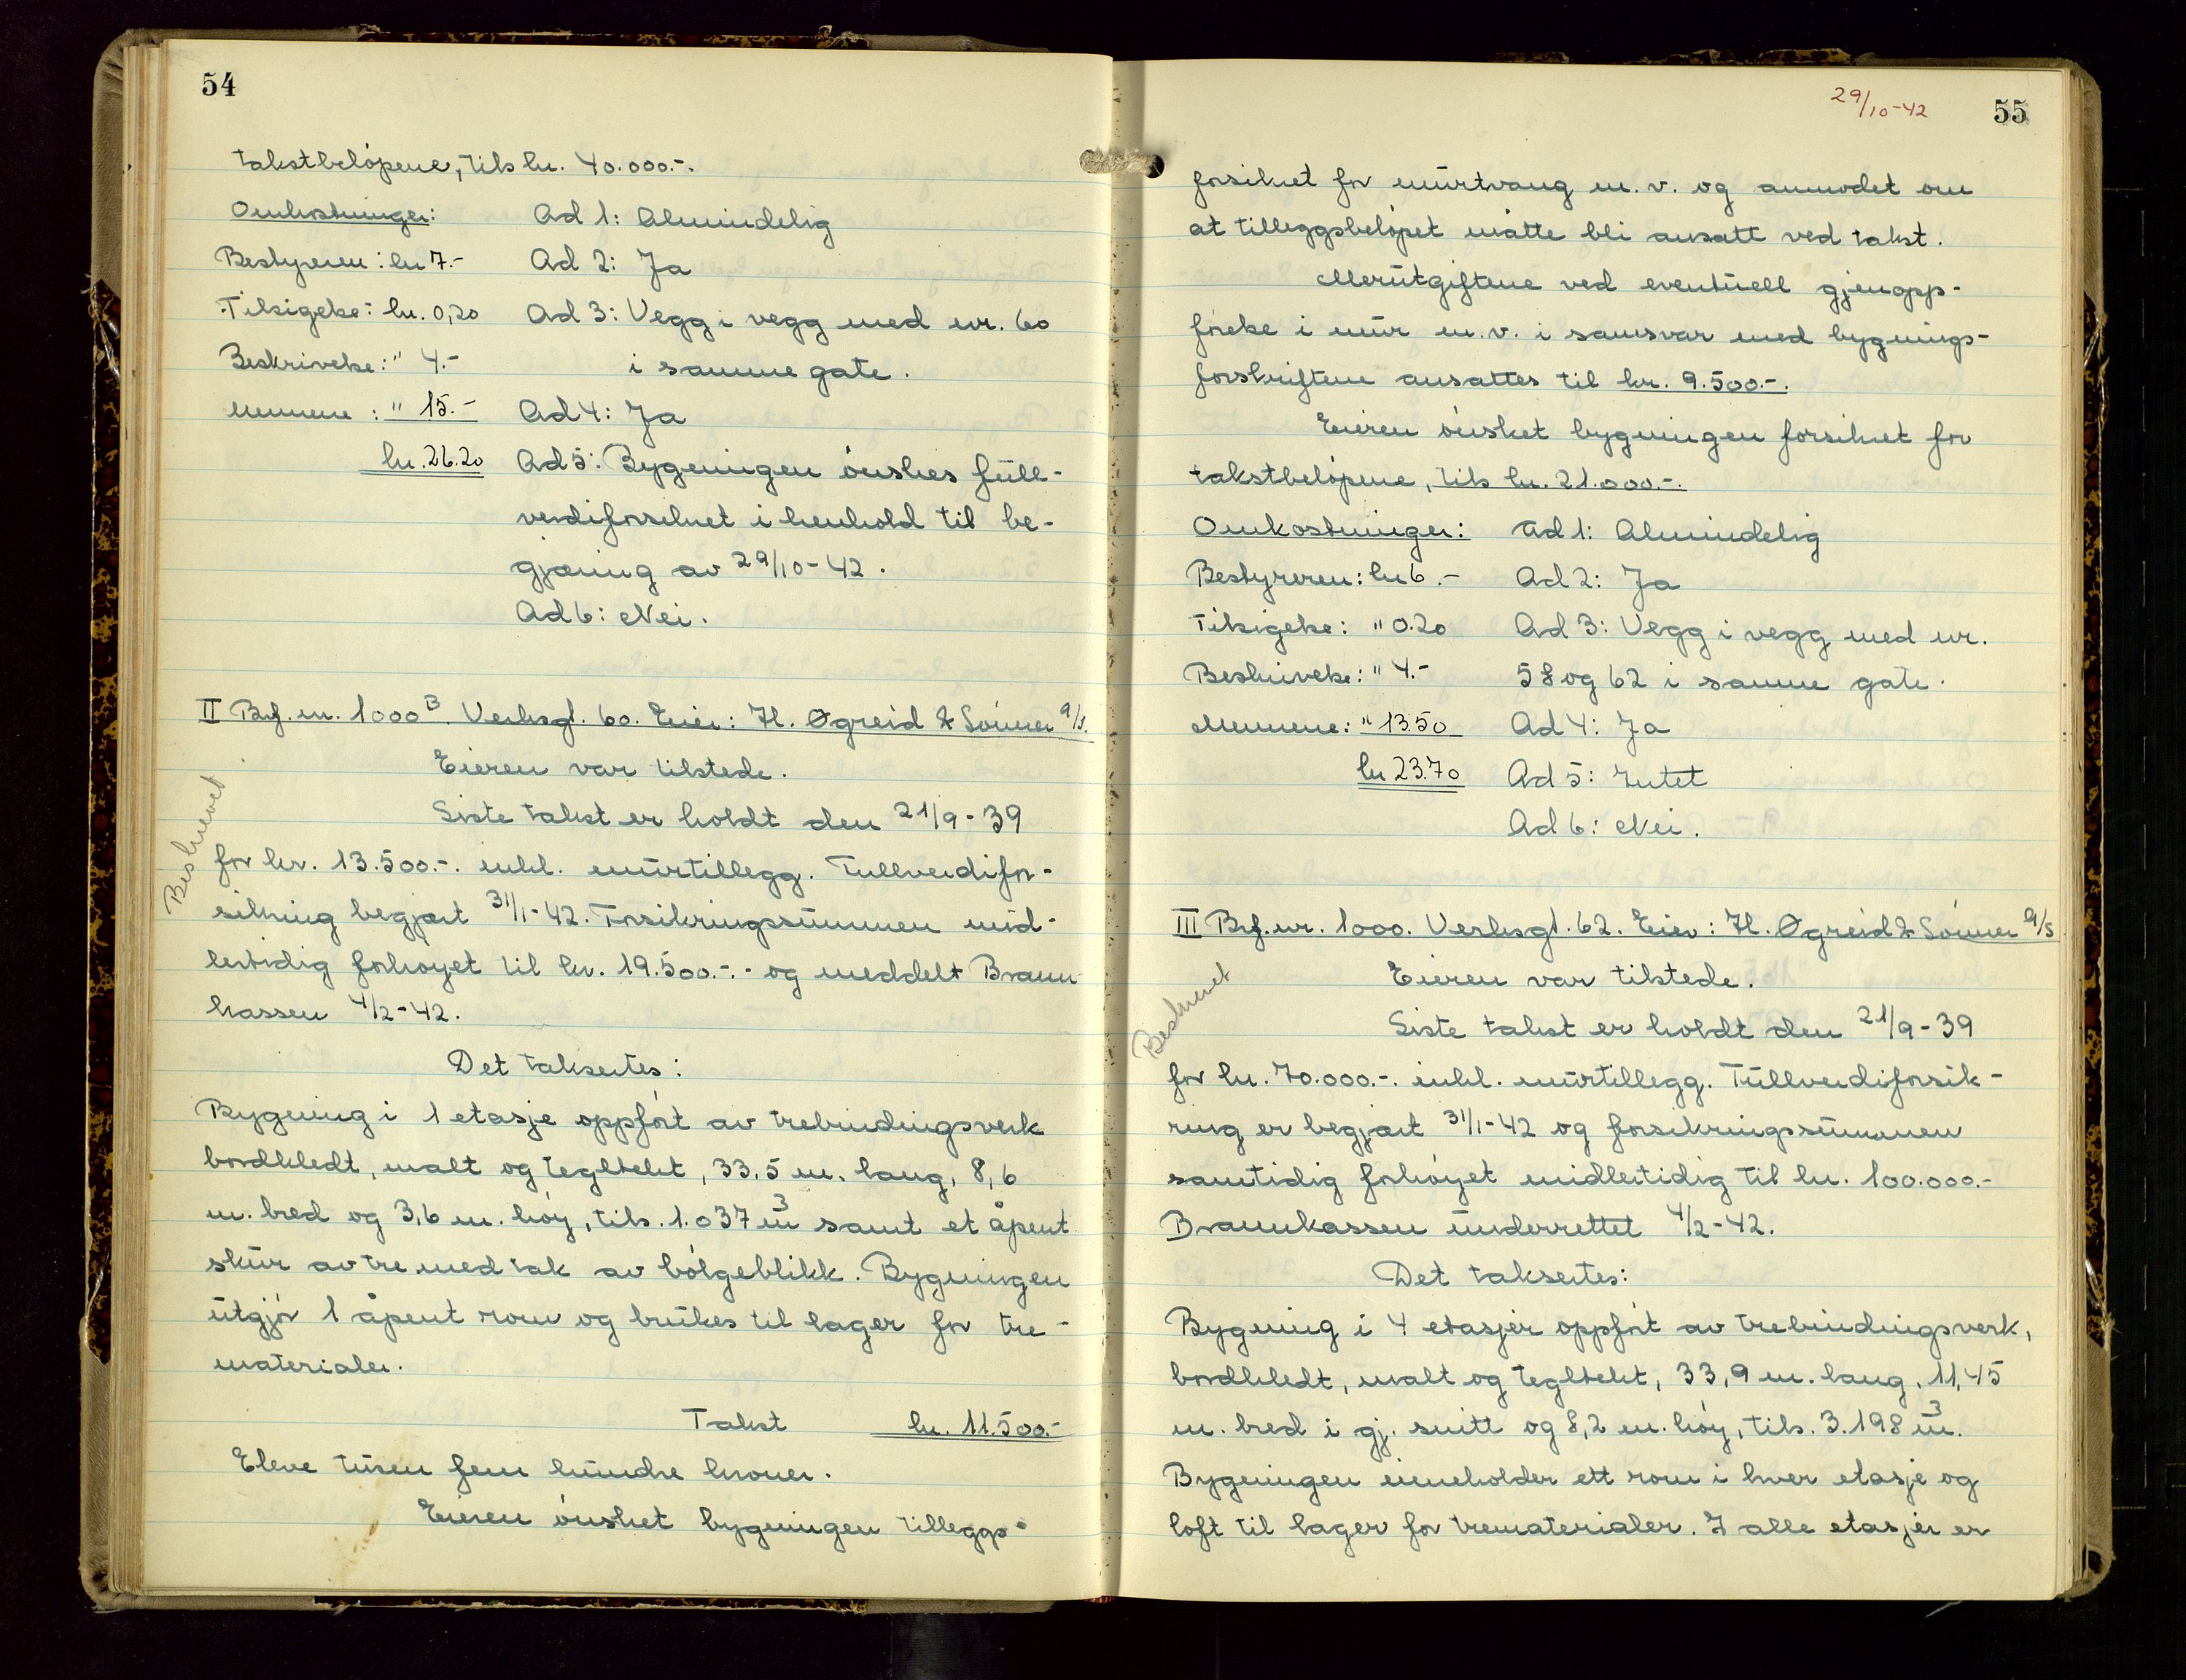 54
takstbeløpene, tils kr. 40.000.-.
Omkostninger: Ad 1: Almindelig
Bestyreren: kr 7.- Ad 2: Ja
Tilsigelse: kr. 0,20 Ad 3: Vegg i vegg med nr. 60
Beskrivelse: " 4.- i samme gate.
Mennene: " 15.- Ad 4: Ja
kr. 26.20 Ad 5: Bygningen ønskes full-
verdiforsikret i henhold til be-
gjæring av 29/10-42.
Ad 6: Nei.
II Brf. nr. 1000 B. Verksgt. 60. Eier: H. Øgreid & Sønner a/s.
Eieren var tilstede.
Siste takst er holdt den 21/9-39
Beskrevet
for kr. 13.500.-. inkl. murtillegg. Fullverdifor-
sikring begjært 31/1-42. Forsikringssummen mid-
lertidig forhøyet til kr. 19.500.-.- og meddelt Brann
kassen 4/2-42.
Det takseres:
Bygning i 1 etasje oppført av trebindingsverk
bordkledt, malt og tegltekt, 33,5 m. lang, 8,6
m. bred og 3,6 m. høy, tils. 1.037 m3 samt et åpent
skur av tre med tak av bølgeblikk. Bygningen
utgjør 1 åpent rom og brukes til lager for tre-
materialer.
Takst kr. 11.500.-
Eleve tusen fem hundre kroner.
Eieren ønsket bygningen tilleggs-
29/10-42 55
forsikret for murtvang m. v. og anmodet om
at tilleggsbeløpet måtte bli ansatt ved takst.
Merutgiftene ved eventuell gjenopp-
førelse i mur m. v. i samsvar med bygnings-
forskriftene ansattes til kr. 9.500.-.
Eieren ønsket bygningen forsikret for
takstbeløpene, tils kr. 21.000.-.
Omkostninger: Ad 1: Almindelig
Bestyreren: kr 6.- Ad 2: Ja
Tilsigelse: " 0.20 Ad 3: Vegg i vegg med nr.
Beskrivelse: " 4.- 58 og 62 i samme gate.
Mennene: " 13.50 Ad 4: Ja
kr 23.70 Ad 5: Intet
Ad 6: Nei.
III Brf. nr. 1000. Verksgt. 62. Eier: H. Øgreid & Sønner a/s
Eieren var tilstede.
Beskrevet
Siste takst er holdt den 21/9-39
for kr. 70.000.-. inkl. murtillegg. Fullverdiforsik-
ring er begjært 31/1-42 og forsikringssummen
samtidig forhøyet midlertidig til kr. 100.000.-
Brannkassen underrettet 4/2-42.
Det takseres:
Bygning i 4 etasjer oppført av trebindingsverk,
bordkledt, malt og tegltekt, 33,9 m. lang, 11,45
m. bred i gj. snitt og 8,2 m. høy, tils. 3.198 m3.
Bygningen inneholder ett rom i hver etasje og
loft til lager for trematerialer. I alle etasjer er